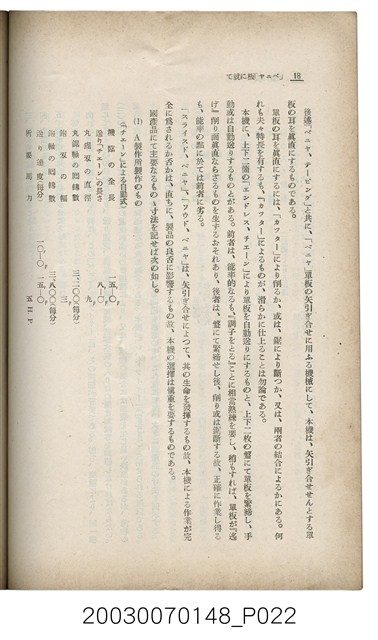 18　「ベニヤ」板に就て
後述「ベニヤ、テーピング」と共に、「ベニヤ」單板の矢引ぎ合せに用ふる機械にして、本機は、矢引ぎ合せせんとする單
板の耳を眞直にするものである。
單板の耳を眞直にするには、「カッター」により削るか、或は、鋸により斷つか、又は、兩者の結合によるかにある。何
れも夫々特長を有するも、「カッター」によるものが、滑らかに仕上ることは勿論である。
本機に、上下二箇の「エンドレス、チェーン」により單板を自動送りにするものと、上下二枚の盤にて單板を緊締し、手
動或は自動送りするものとがある。前者は、能率的なるも、「調子をとる」ことに相當熟練を要し、稍もすれば、單板が「逃
げ」削り面眞直ならざるものを生ずるおそれあり、後者は、盤にて緊締せし後、削り或は鋸斷する故、正確に作業し得る
も、能率の點に於ては前者に劣る。
「スライスド、ベニヤ」、「ソウド、ベニヤ」は、矢引ぎ合せによつて、其の生命を發揮するもの故、本機による作業が完
全に爲されるか否かは、直ちに、製品の良否に影響するもの故、本機の選擇は愼重を要するものである。
國產品にて主要なるもの、寸法を記せば次の如し。
(1)　A製作所製作のもの
(「チェーン」による自動式)
機臺の全長　一五・〇
送り「チェーン」の長さ　八・〇
丸鋸の直徑　九
丸鋸軸の回轉數　三、二〇〇(每分)
鉋刃の幅　三
鉋軸の回轉數　三、八〇〇(每分)
送り速度(每分)
所要馬力　五 H.P.
20030070148_P022